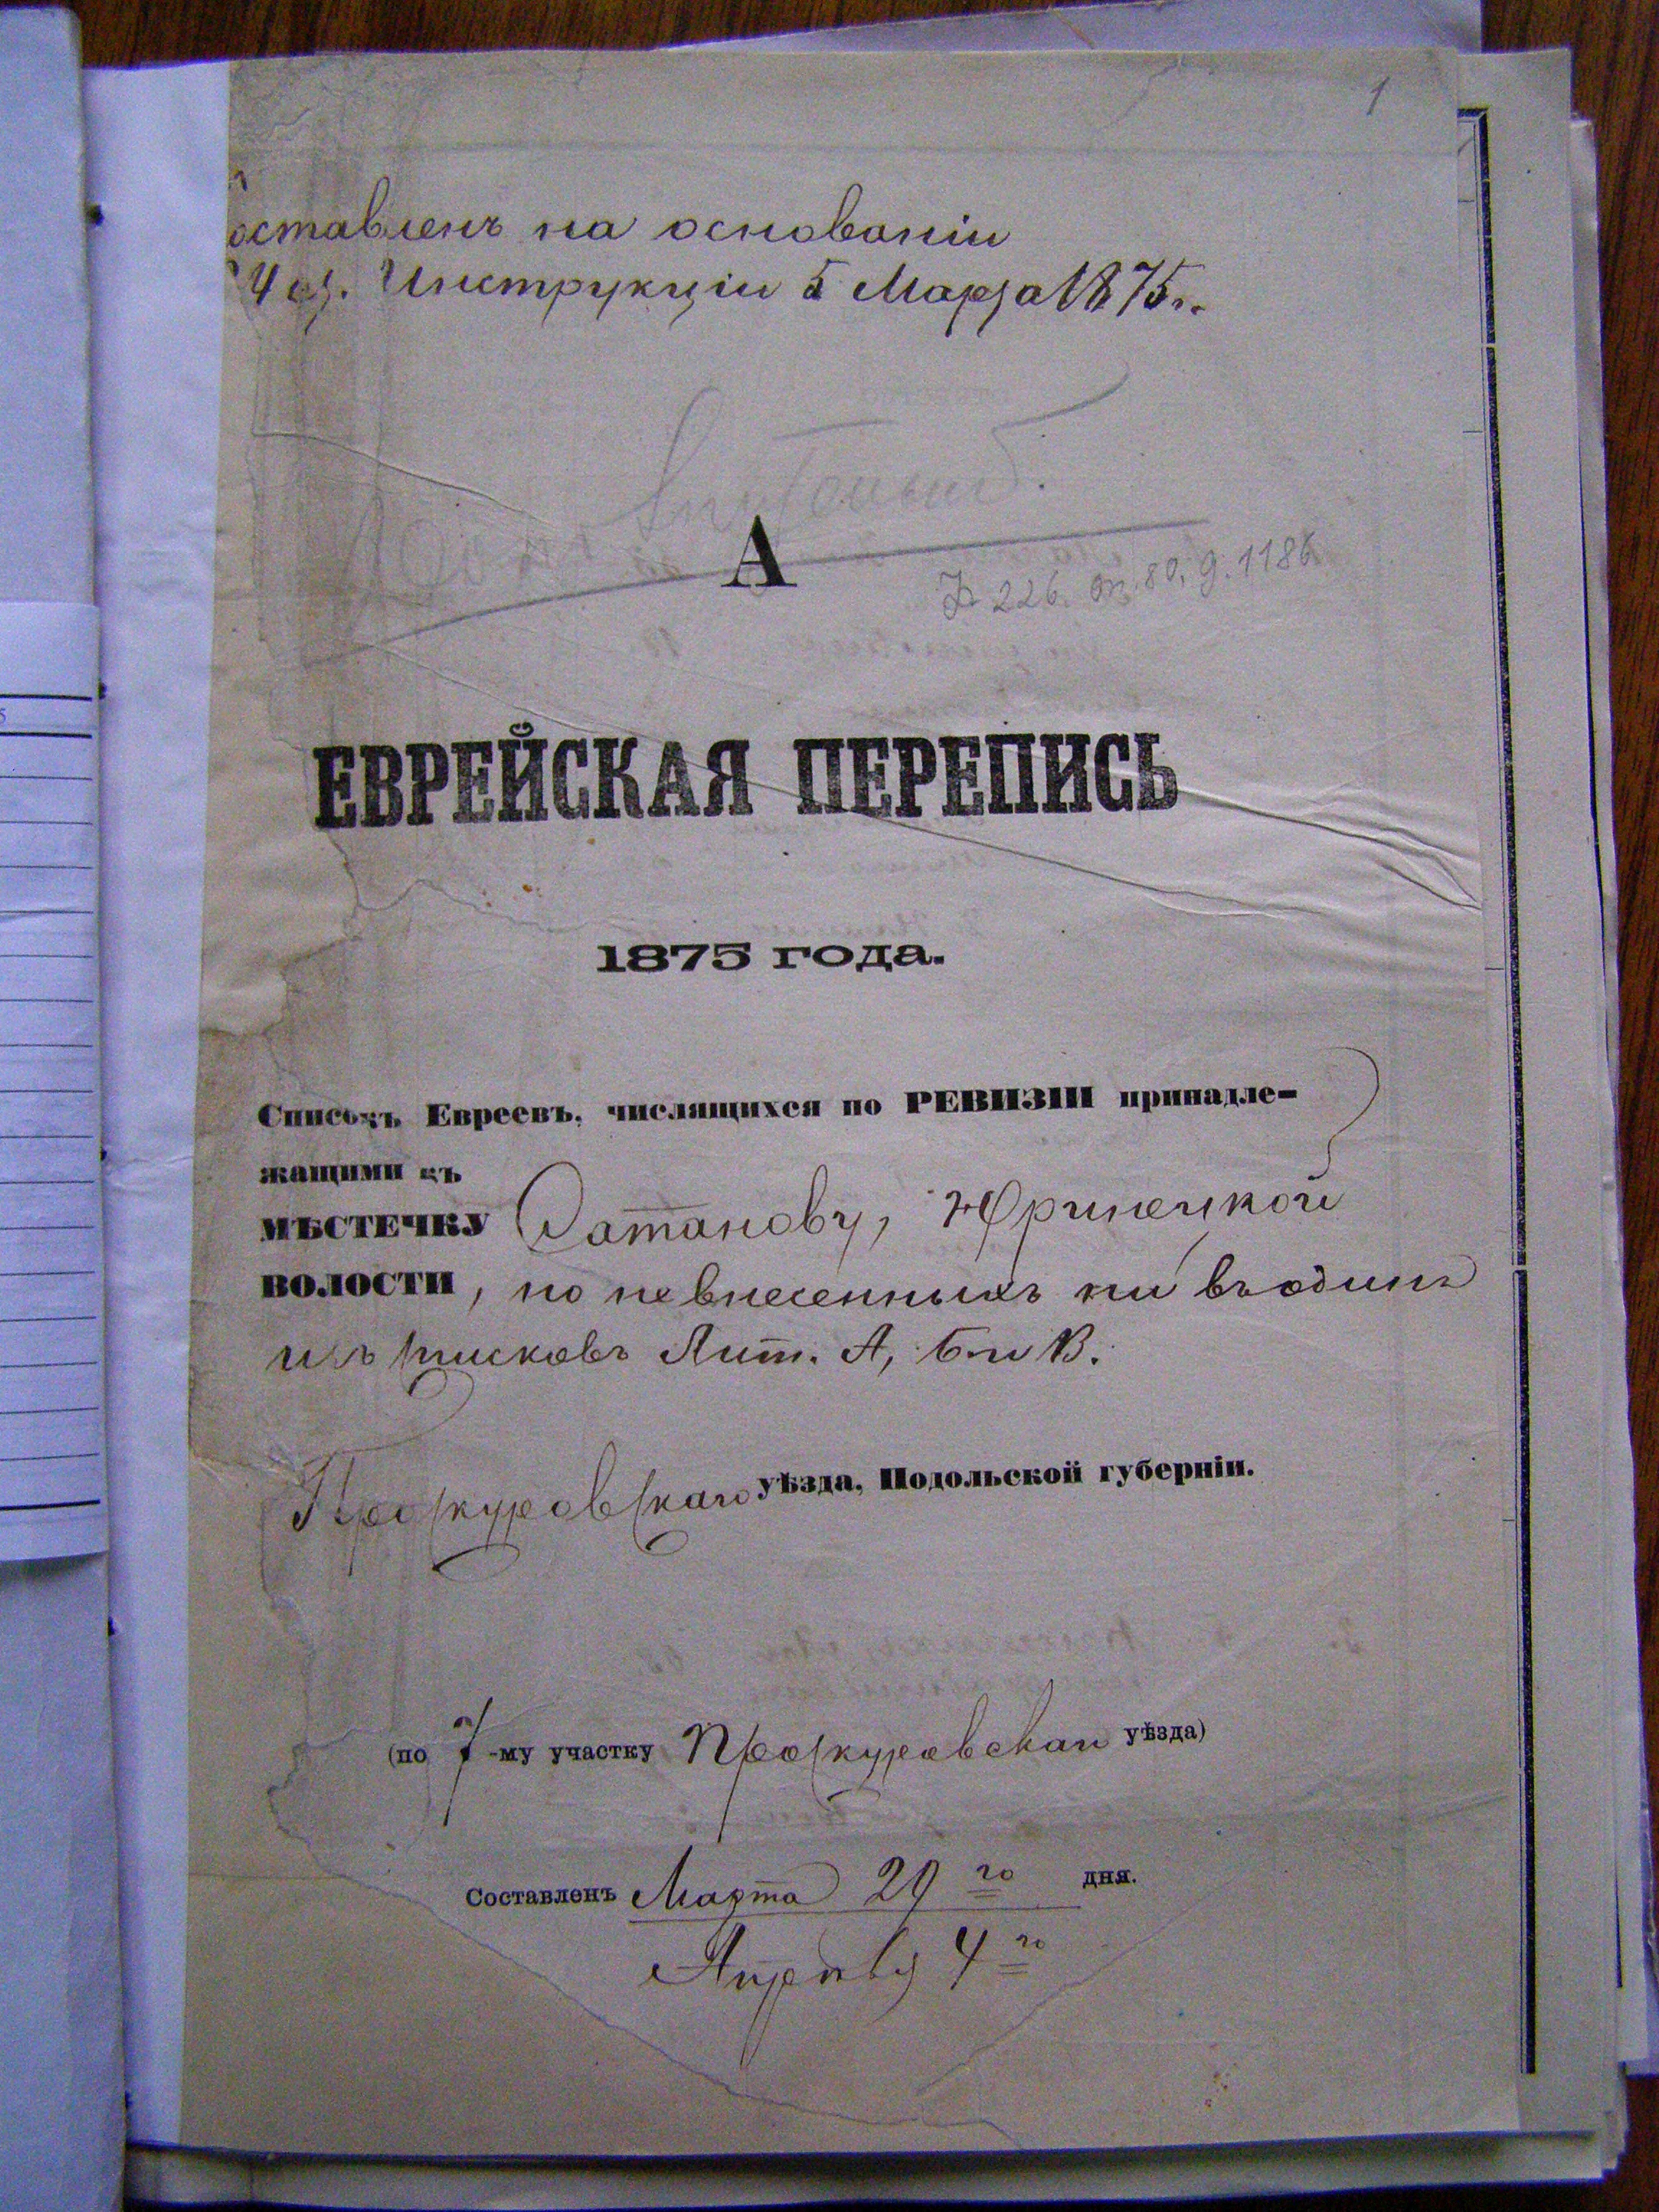 1
оставленъ на основаніи
4 ст. Инструкціи 5 Марта 1875 г.
А
Ф 226. оп. 80, д. 1186
ЕВРЕЙСКАЯ ПЕРЕПИСЬ
1875 года.
Списокъ Евреевъ, числящихся по РЕВИЗІИ принадле-
жащими къ
МѢСТЕЧКУ Сатанову, Юринецкой
ВОЛОСТИ, но невнесенныхъ ни въ одинъ
изъ списковъ Лит. А, Б и В.
Проскуровскаго уѣзда, Подольской губерніи.
(по 7-му участку Проскуровскаго уѣзда)
Составленъ Марта 29го дня.
Апрѣля 4го